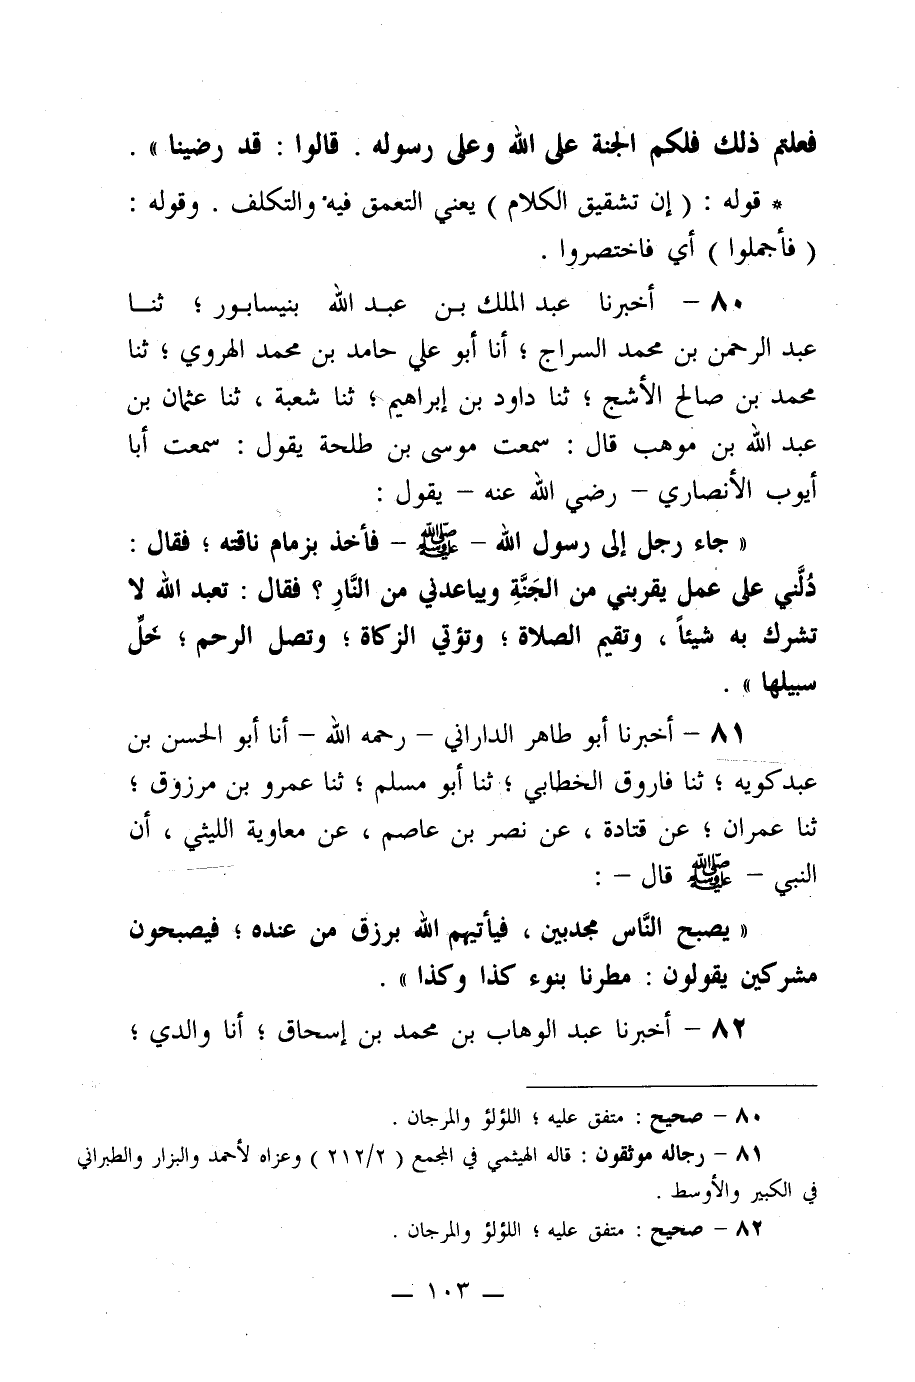 فعلتم ذلك فلكم الجنة على الله وعلى رسوله . قالوا : قد رضينا » .
* قوله : ( إن تشقيق الكلام ) يعني التعمق فيه والتكلف . وقوله :
( فأجملوا ) أي فاختصروا .
٨٠ – أخبرنا عبد الملك بن عبد الله بنيسابور ؛ ثنا
عبد الرحمن بن محمد السراج ؛ أنا أبو علي حامد بن محمد الهروي ؛ ثنا
محمد بن صالح الأشج ؛ ثنا داود بن إبراهيم ؛ ثنا شعبة ، ثنا عثمان بن
عبد الله بن موهب قال : سمعت موسى بن طلحة يقول : سمعت أبا
أيوب الأنصاري – رضي الله عنه – يقول :
« جاء رجل إلى رسول الله – ﷺ – فأخذ بزمام ناقته ؛ فقال :
دُلَّني على عمل يقربني من الجَنَّةِ ويباعدني من النَّارِ ؟ فقال : تعبد الله لا
تشرك به شيئاً ، وتقيم الصلاة ؛ وتؤتي الزكاة ؛ وتصل الرحم ؛ خَلِّ
سبيلها » .
٨١ – أخبرنا أبو طاهر الداراني – رحمه الله – أنا أبو الحسن بن
عبدكويه ؛ ثنا فاروق الخطابي ؛ ثنا أبو مسلم ؛ ثنا عمرو بن مرزوق ؛
ثنا عمران ؛ عن قتادة ، عن نصر بن عاصم ، عن معاوية الليثي ، أن
النبي – ﷺ قال – :
« يصبح النَّاس مجدبين ، فيأتيهم الله برزق من عنده ؛ فيصبحون
مشركين يقولون : مطرنا بنوء كذا وكذا » .
٨٢ – أخبرنا عبد الوهاب بن محمد بن إسحاق ؛ أنا والدي ؛
٨٠ – صحيح : متفق عليه ؛ اللؤلؤ والمرجان .
٨١ – رجاله موثقون : قاله الهيثمي في المجمع ( ٢١٢/٢ ) وعزاه لأحمد والبزار والطبراني
في الكبير والأوسط .
٨٢ – صحيح : متفق عليه ؛ اللؤلؤ والمرجان .
— ١٠٣ —